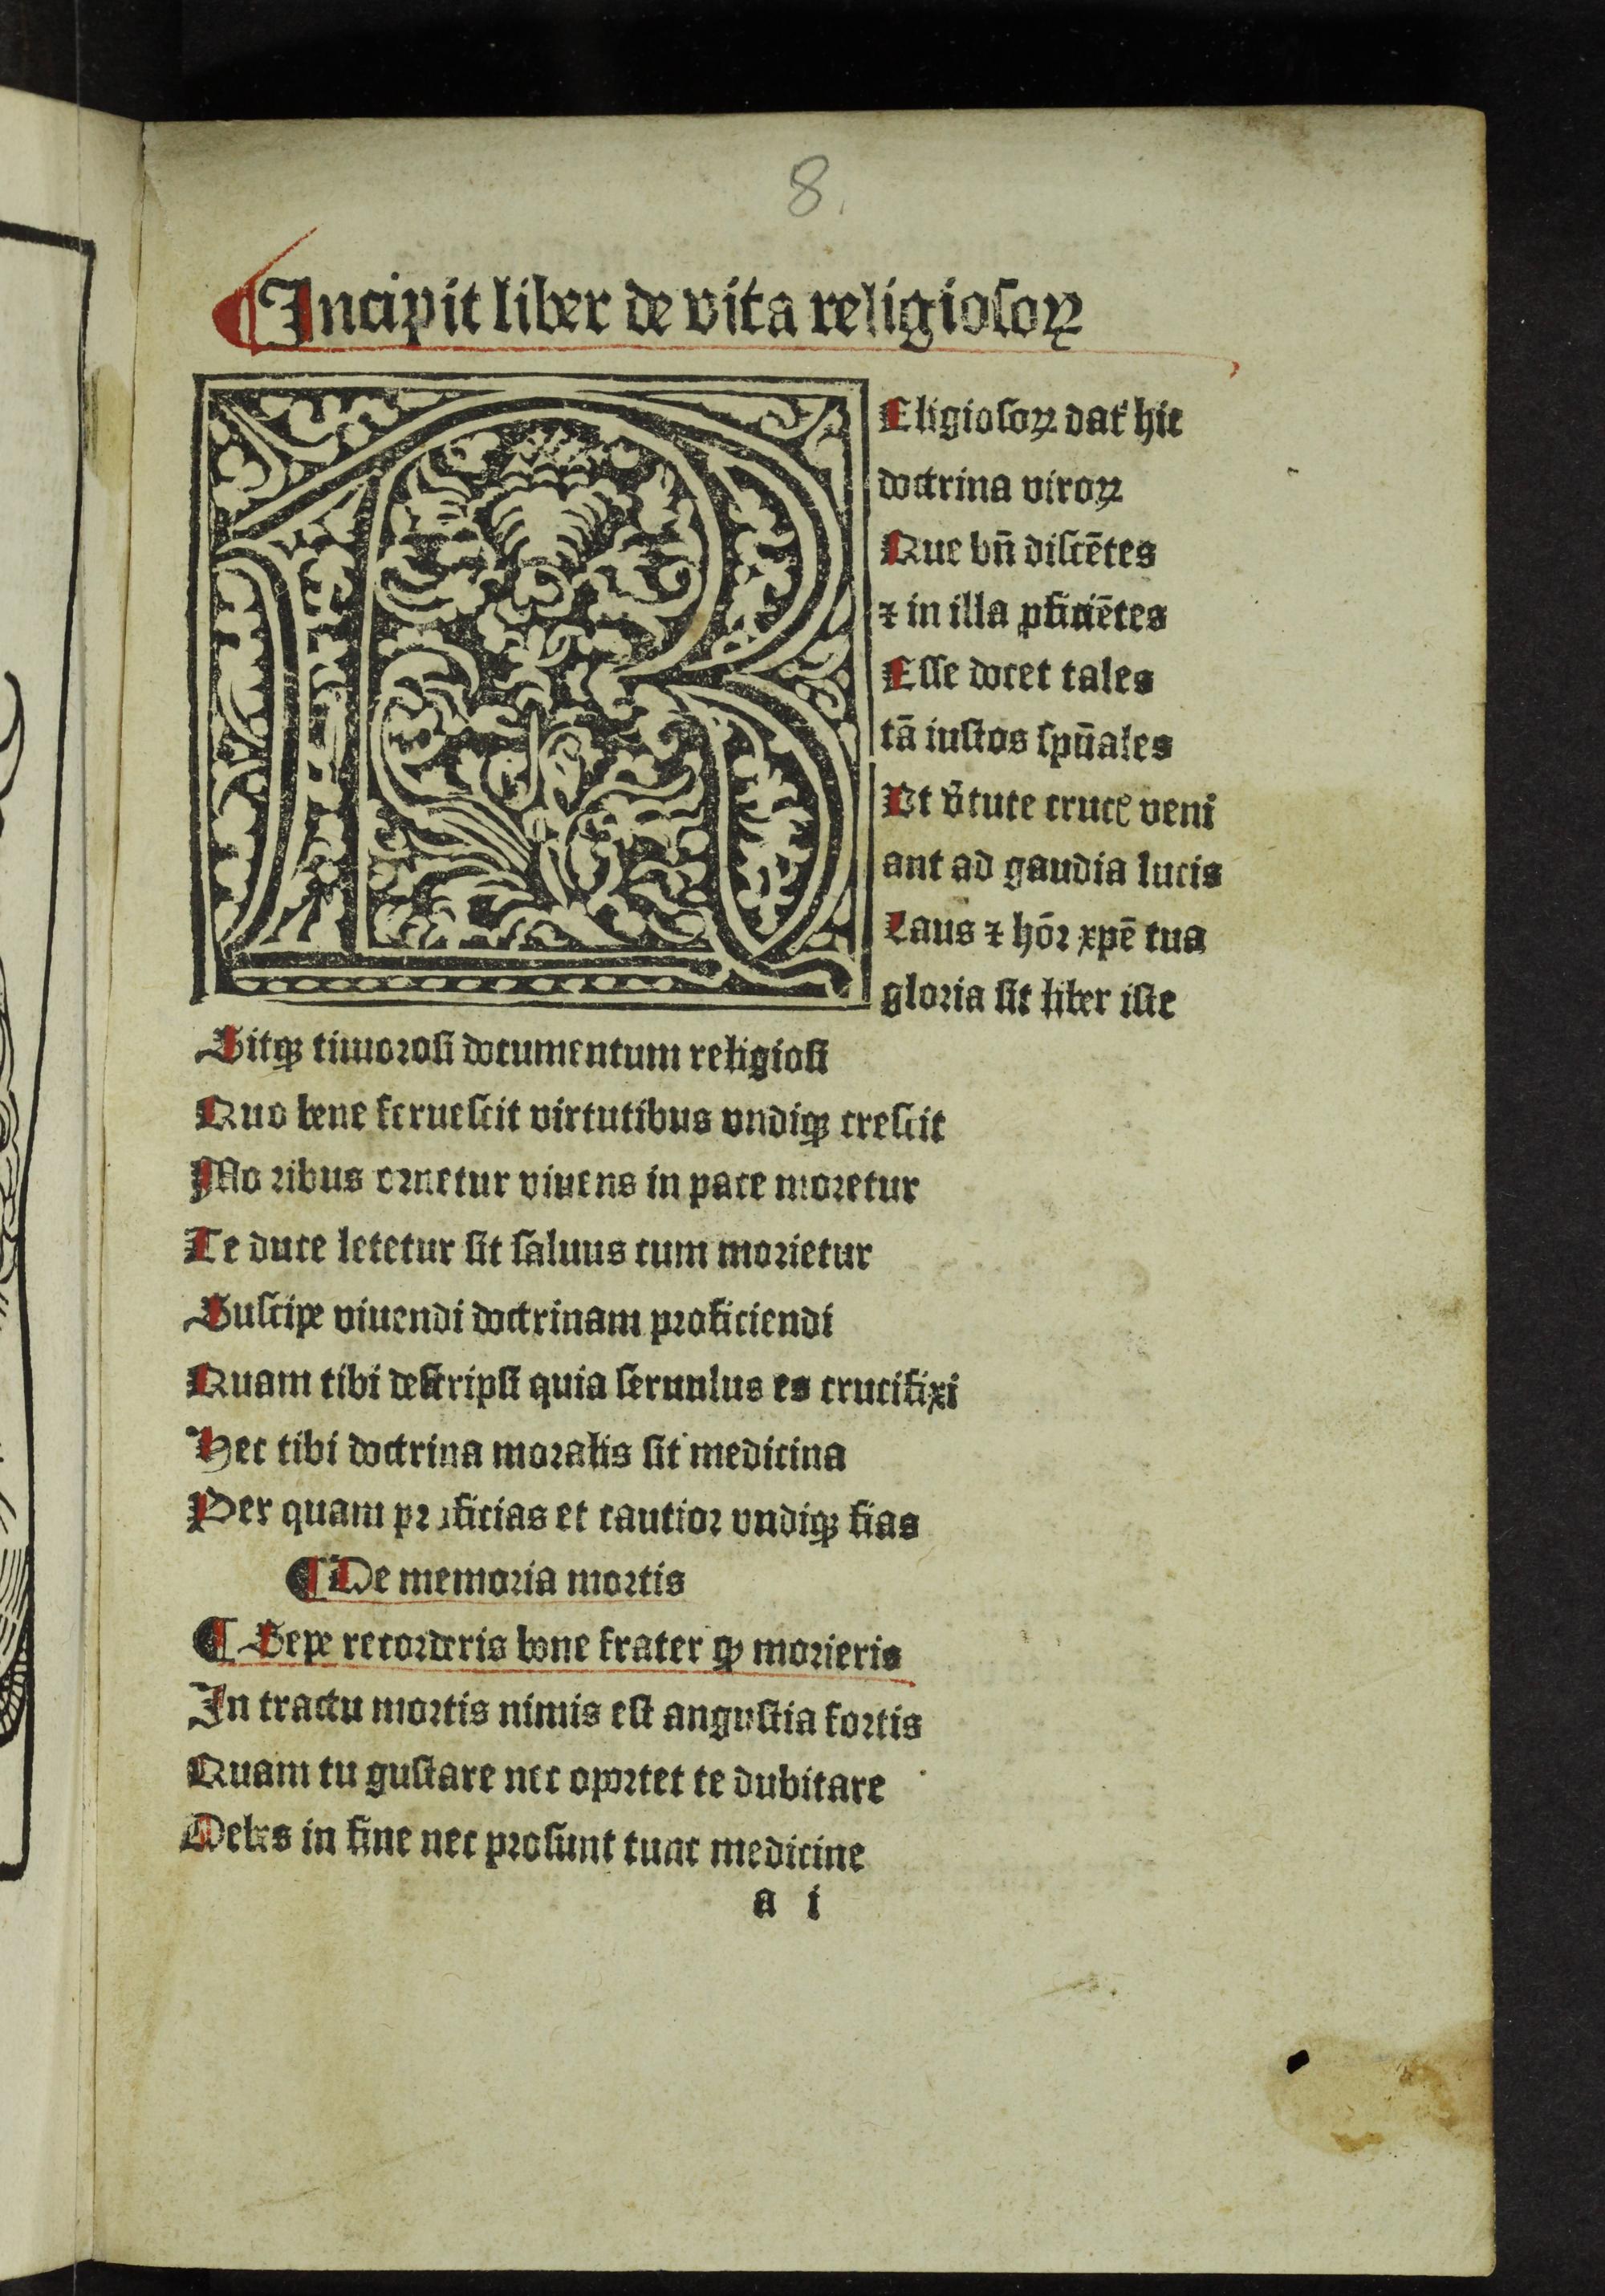 8.
¶Incipit liber de vita religiosoꝝ
REligiosoꝝ dat᷑ hic
doctrina viroꝝ
Que bn̄ discētes
⁊ in illa ꝓficiētes
Esse docet tales
tā iustos spūales
Vt v̓tute crucꝭ veni
ant ad gaudia lucis
Laus ⁊ hōꝛ xpē tua
gloꝛia sit liber iste
Sitqꝫ timoꝛosi documentum religiosi
Quo bene feruescit virtutibus vndiqꝫ crescit
Moꝛibus oꝛnetur viuens in pace moꝛetur
Te duce letetur sit saluus cum moꝛietur
Suscipe viuendi doctrinam pꝛoficiendi
Quam tibi descripsi quia seruulus es crucifixi
Hec tibi doctrina moꝛalis sit medicina
Per quam pꝛoficias et cautioꝛ vndiqꝫ fias
¶De memoꝛia moꝛtis
¶Sepe recoꝛderis bone frater ꝙ moꝛieris
In tractu moꝛtis nimis est angustia foꝛtis
Quam tu gustare nec opoꝛtet te dubitare
Debes in fine nec pꝛosunt tunc medicine
a i